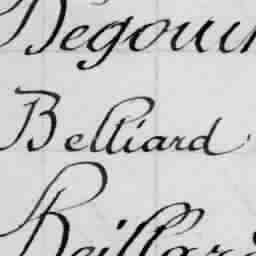 Degouin
Belliard
Baillard